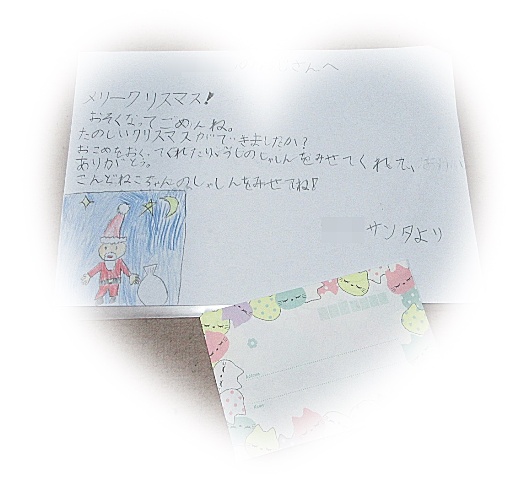 さんへ
メリークリスマス!
おそくなってごめんね。
たのしいクリスマスができましたか?
おこめをおくってくれたりぶうじのしゃしんをみせてくれて、
ありがとう。
こんどねこちゃんのしゃしんをみせてね!
サンタより